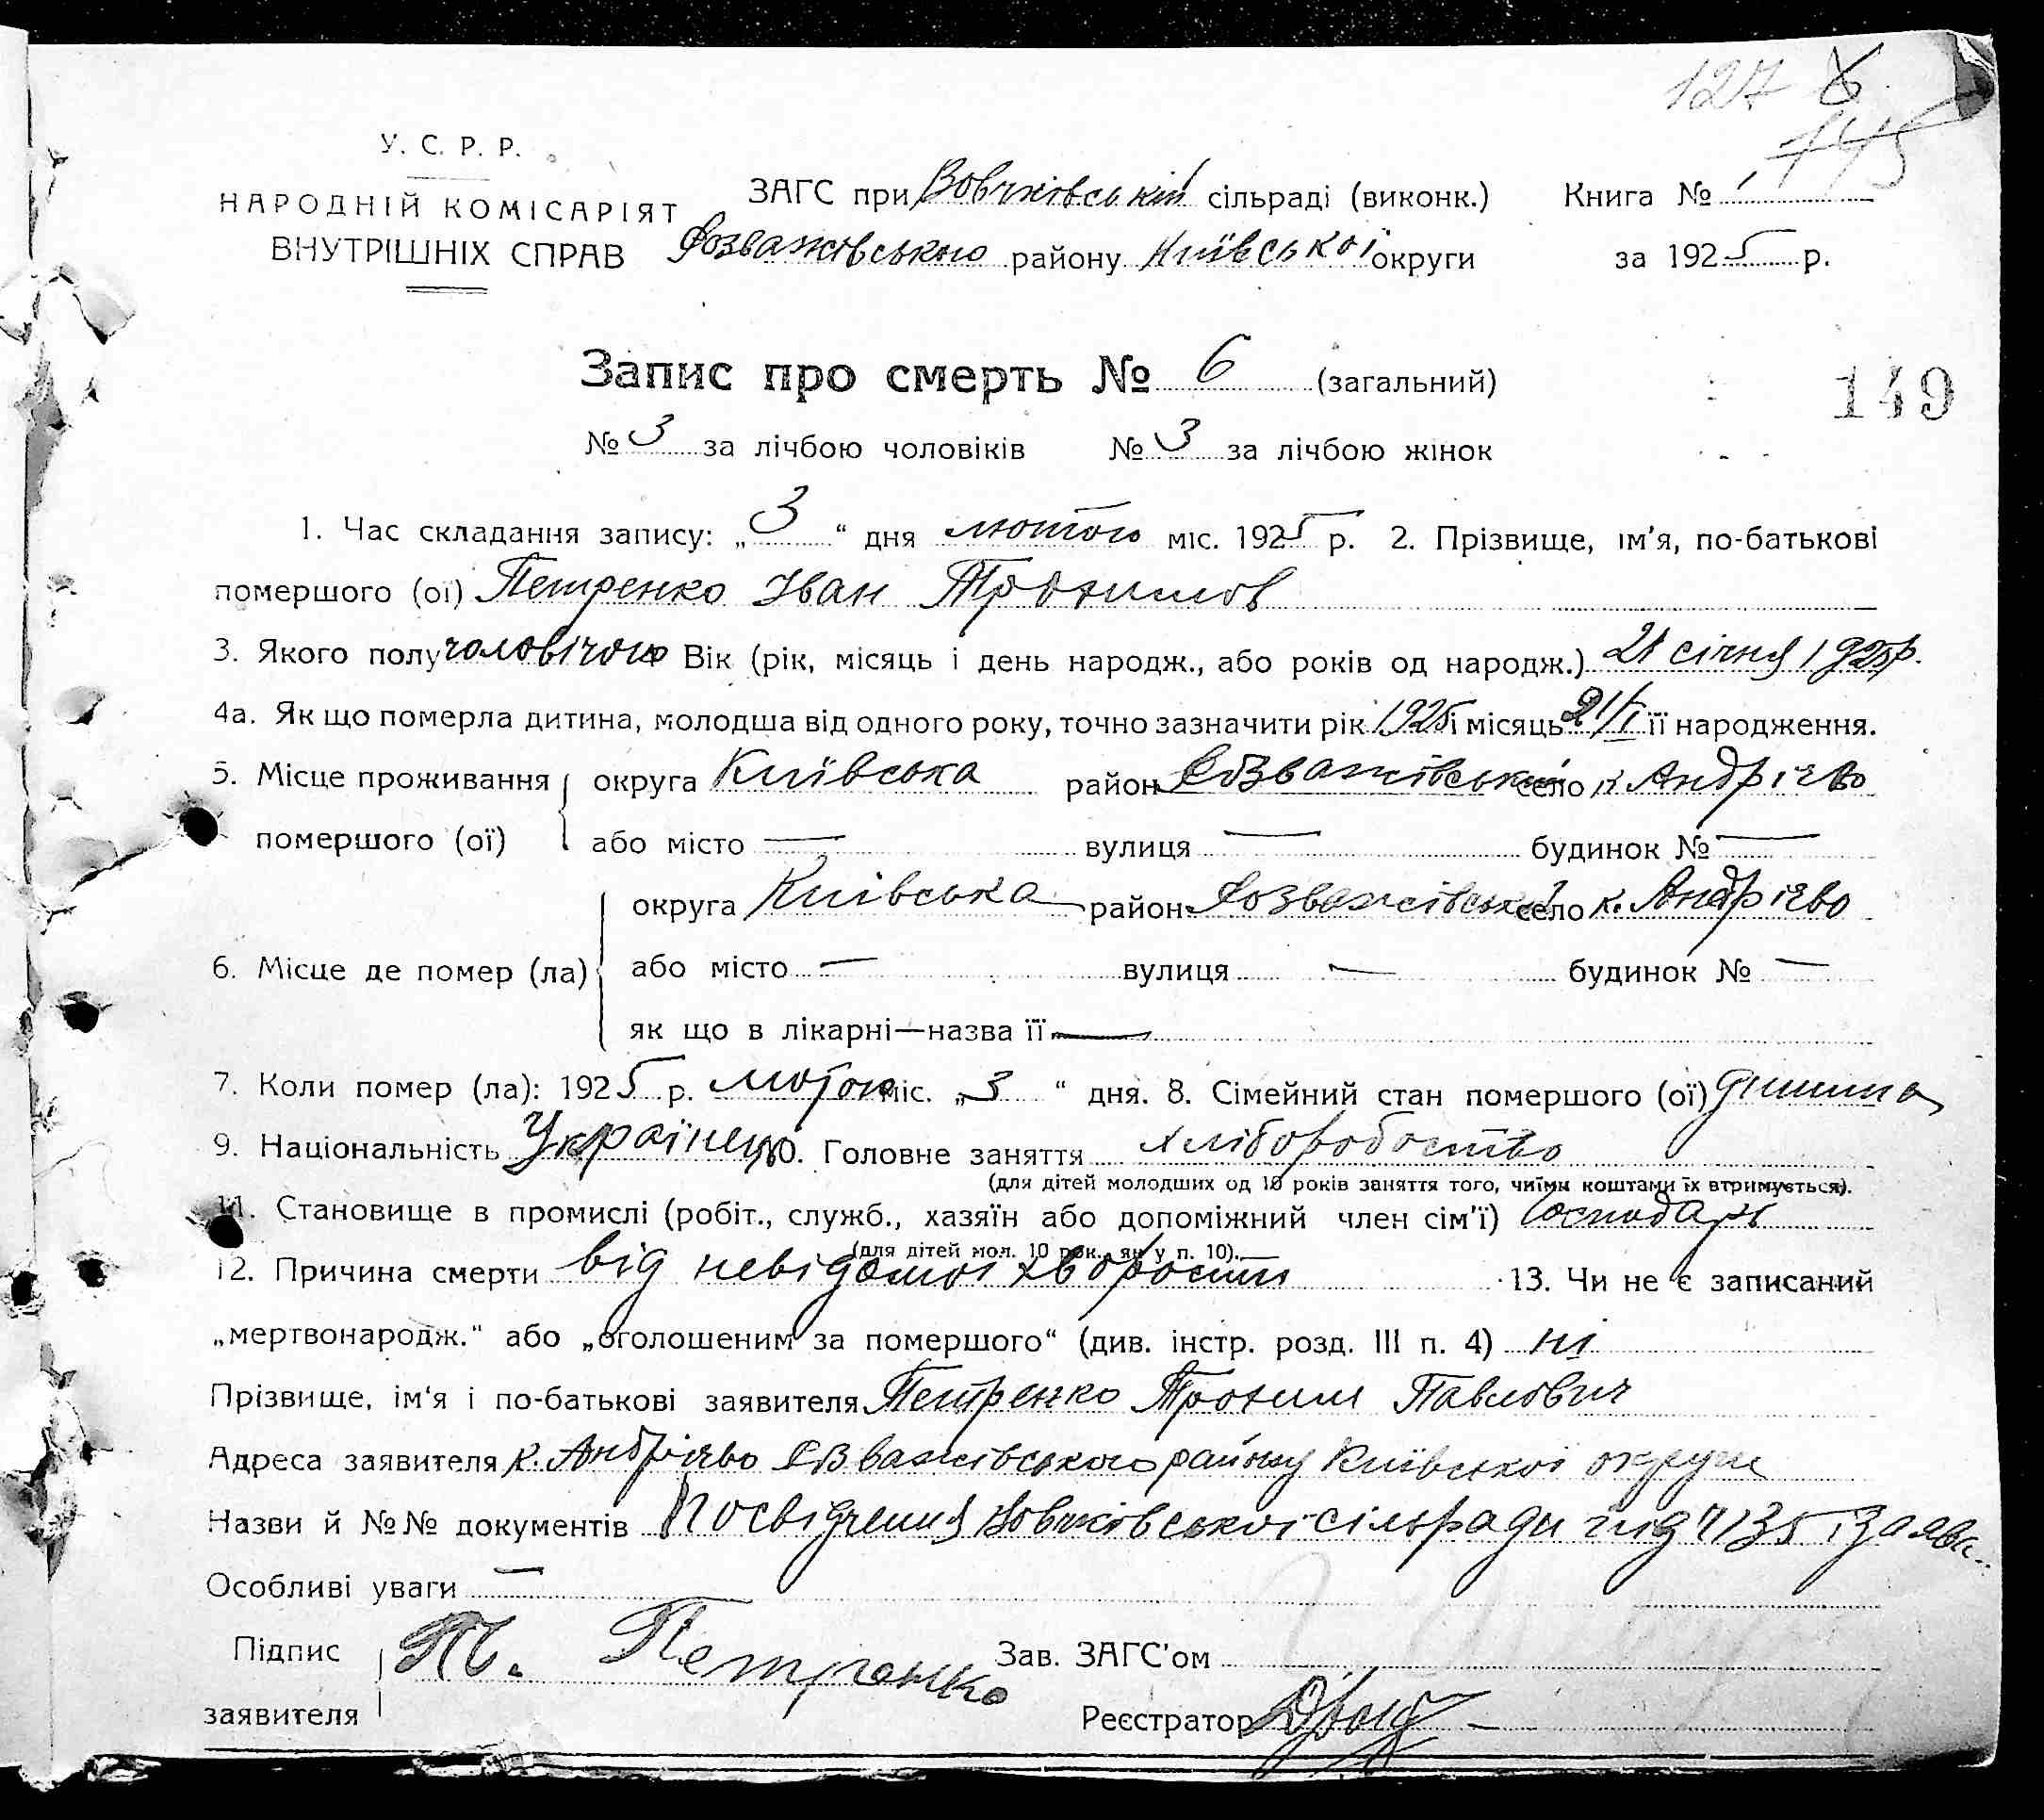 127 6
145
У. С. Р. Р.
НАРОДНІЙ КОМІСАРІЯТ
ВНУТРІШНІХ СПРАВ
ЗАГС при Вовчківській сільраді (виконк.)
Розважівського району Київської округи
Книга № 1
за 1925 р.
Запис про смерть № 6 (загальний)
149
№ 3 за лічбою чоловіків № 3 за лічбою жінок
1. Час складання запису: „3“ дня лютого міс. 1925 р. 2. Прізвище, ім'я, по-батькові
помершого (ої) Петренко Іван Трохимов
3. Якого полу чоловічого Вік (рік, місяць і день народж., або років од народж.) 21 січня 1925 р.
4а. Як що померла дитина, молодша від одного року, точно зазначити рік 1925 і місяць 21/I її народження.
5. Місце проживання помершого (ої) округа Київська район Розважівський село к. Андрієво
або місто — вулиця — будинок № —
6. Місце де помер (ла) округа Київська район Розважівський село к. Андрієво
або місто — вулиця — будинок № —
як що в лікарні—назва її —
7. Коли помер (ла): 1925 р. лютого міс. „3“ дня. 8. Сімейний стан помершого (ої) дитина
9. Національність Українець 10. Головне заняття хліборобство
(для дітей молодших од 10 років заняття того, чиїми коштами їх втримується).
11. Становище в промислі (робіт., служб., хазяїн або допоміжний член сім'ї) Господарь
(для дітей мол. 10 рок., як у п. 10).
12. Причина смерти від невідомої хворости 13. Чи не є записаний
„мертвонародж.“ або „оголошеним за помершого“ (див. інстр. розд. III п. 4) ні
Прізвище, ім'я і по-батькові заявителя Петренко Трохим Павлович
Адреса заявителя к. Андрієво Розважівського району Київської округи
Назви й №№ документів Посвідчення Вовчківської сільради під ч 135 і заява
Особливі уваги —
Підпис заявителя Т. Петренко
Зав. ЗАГС'ом
Реєстратор